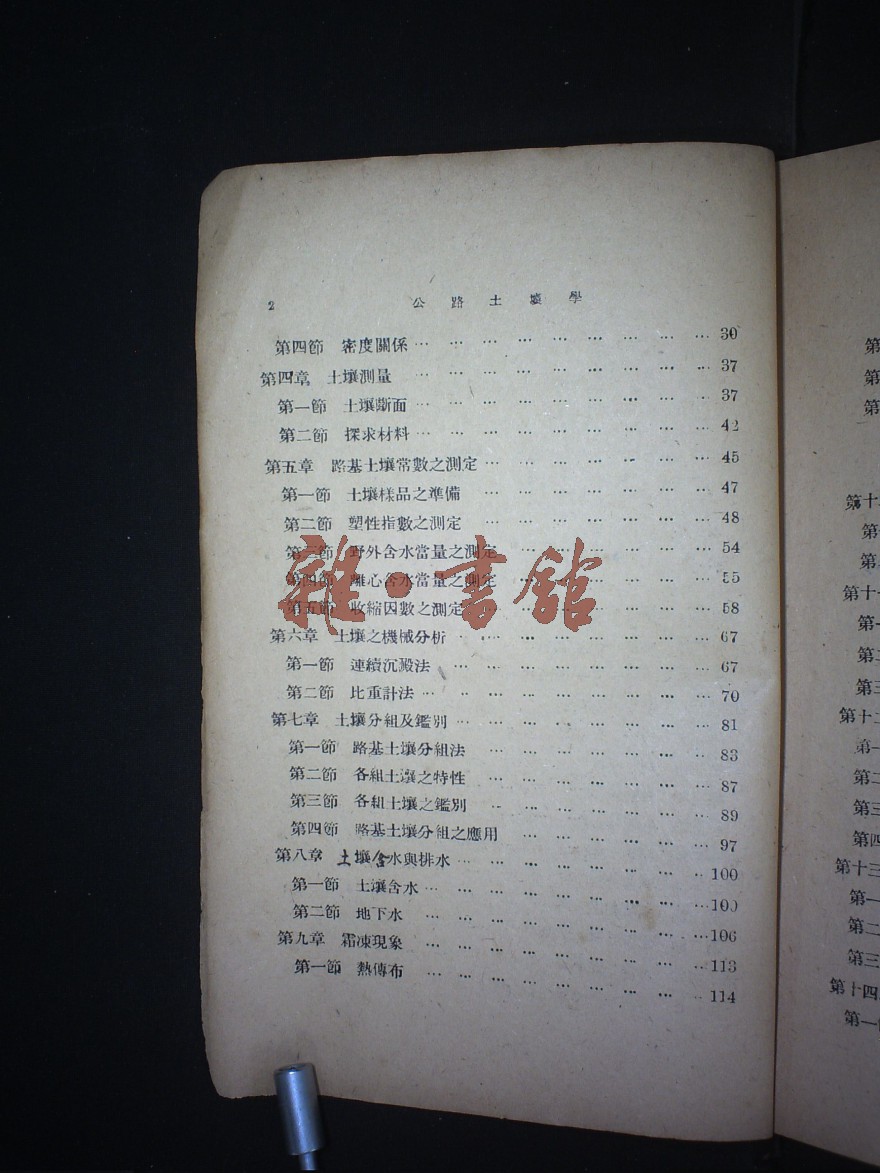 2 公路土壤學
第四節 密度關係 … … … … … … … … … 30
第四章 土壤測量 … … … … … … … … … 37
第一節 土壤斷面 … … … … … … … … … 37
第二節 探求材料 … … … … … … … … … 42
第五章 路基土壤常數之測定 … … … … … … … 45
第一節 土壤樣品之準備 … … … … … … … … 47
第二節 塑性指數之測定 … … … … … … … … 48
第三節 野外含水當量之測定 … … … … … … … 54
第四節 離心含水當量之測定 … … … … … … 55
第五節 收縮因數之測定 … … … … … … … 58
雜·書館
第六章 土壤之機械分析 … … … … … … … … 67
第一節 連續沉澱法 … … … … … … … … 67
第二節 比重計法 … … … … … … … … … 70
第七章 土壤分組及鑑別 … … … … … … … … 81
第一節 路基土壤分組法 … … … … … … … 83
第二節 各組土壤之特性 … … … … … … … 87
第三節 各組土壤之鑑別 … … … … … … … 89
第四節 路基土壤分組之應用 … … … … … … 97
第八章 土壤含水與排水 … … … … … … … … 100
第一節 土壤含水 … … … … … … … … … 100
第二節 地下水 … … … … … … … … … 106
第九章 霜凍現象 … … … … … … … … … 113
第一節 熱傳布 … … … … … … … … … 114
第
第
第
第十
第
第
第十一
第一
第二
第三
第十二
第一
第二
第三
第四
第十三
第一
第二
第三
第十四
第一